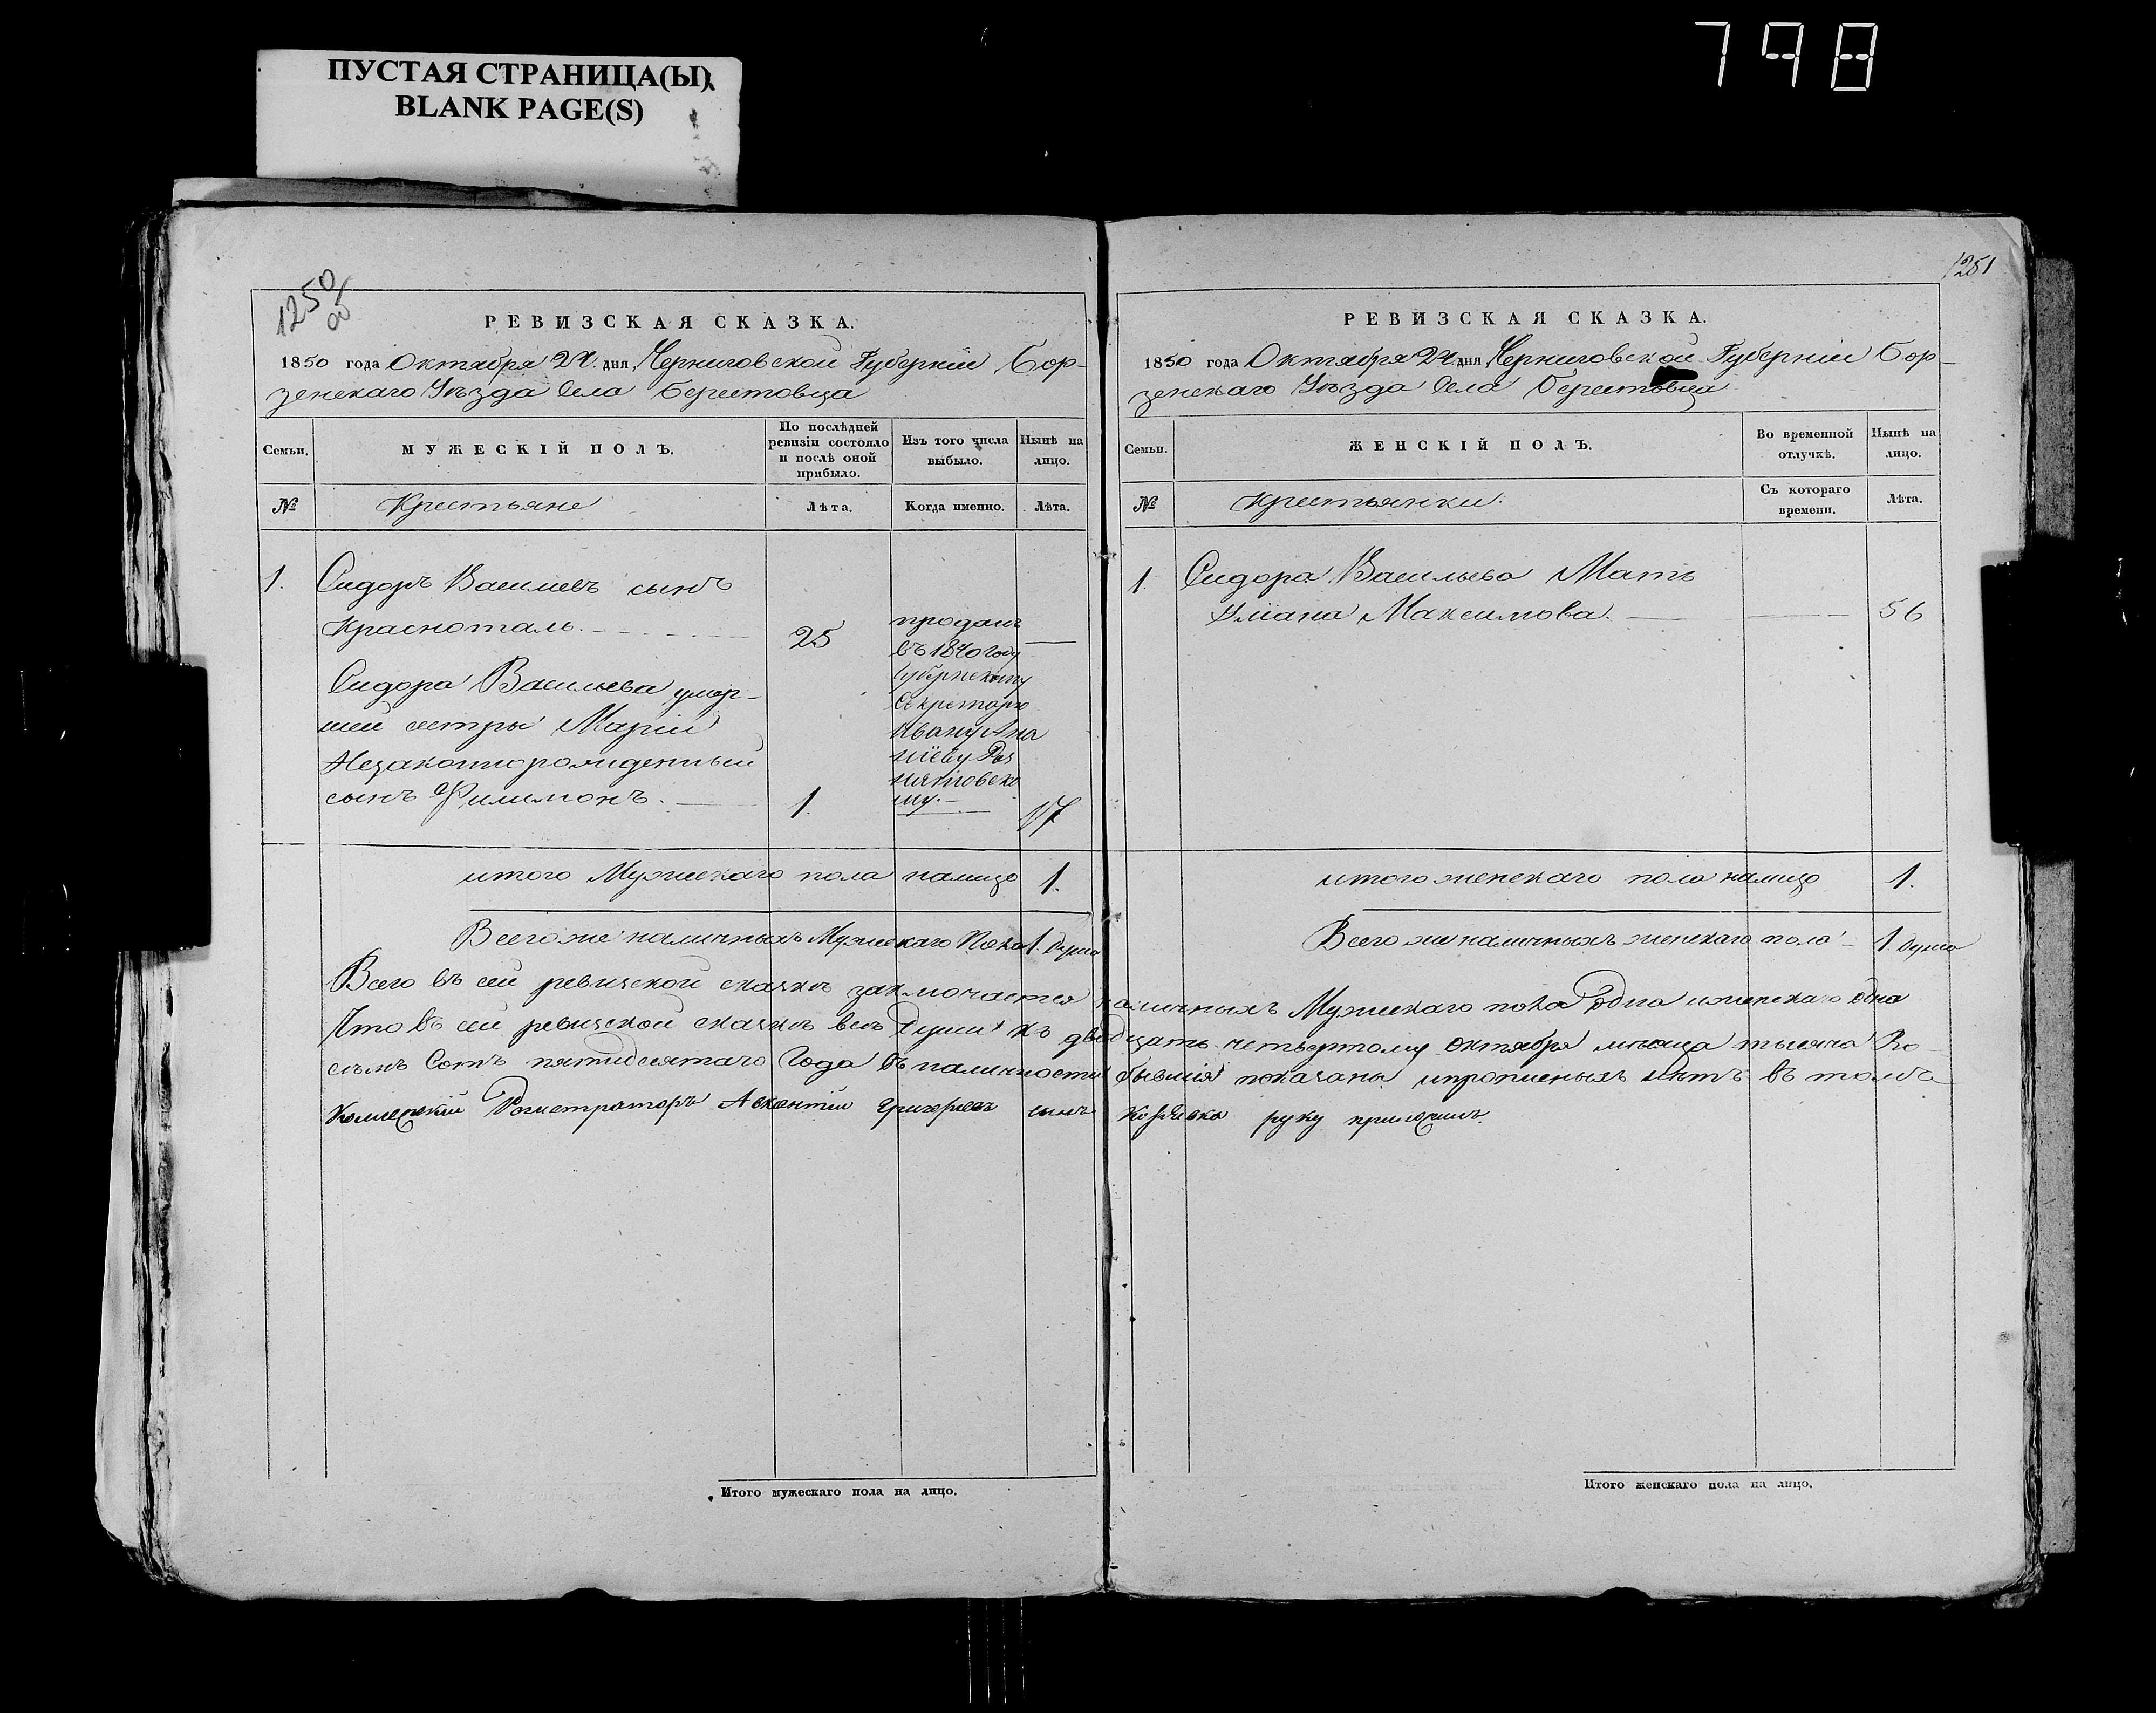 ПУСТАЯ СТРАНИЦА(Ы)
BLANK PAGE(S)
798
1250
об
РЕВИЗСКАЯ СКАЗКА.
1850 года Октября 24. дня, Черниговской Губерніи Бор-
зенскаго Уѣзда Села Берестовца
Семьи.
МУЖЕСКІЙ ПОЛЪ.
По послѣдней ревизіи состояло и послѣ оной прибыло.
Изъ того числа выбыло.
Нынѣ на лицо.
№
Крестьяне
Лѣта.
Когда именно.
Лѣта.
1. Сидоръ Васильевъ сынъ
Красноталь. 25
проданъ
въ 1840 году
Губернскому
Секретарю
Ивану Ана
ніеву
му.
Сидора Васильева умер-
шей сестры Маріи
Незаконнорожденный
сынъ Филимонъ. 1. 17
итого Мужескаго пола налицо 1.
Всего же наличныхъ Мужескаго Пола 1. Душа
1251
РЕВИЗСКАЯ СКАЗКА.
1850 года Октября 24 дня, Черниговской Губерніи Бор-
зенскаго Уѣзда Села Берестовца
Семьи.
ЖЕНСКІЙ ПОЛЪ.
Во временной отлучкѣ.
Нынѣ на лицо.
№
Крестьянки.
Съ котораго времени.
Лѣта.
1. Сидора Васильева Мать
Уліана Максимова. 56
итого женскаго пола налицо 1.
Всего же наличныхъ женскаго пола 1. душа
Всего въ сей ревизской сказкѣ заключается наличныхъ Мужескаго пола одна и женскаго одна
Что въ сей ревизской сказкѣ всѣ Души къ двадцать четвертому октября мѣсяца тысяча Во-
съмъ Сотъ пятидесятаго Года въ наличности бывшія показаны и прописныхъ нѣтъ въ томъ
Колежскій Регистраторъ Авксентій Григорьевъ сынъ руку приложилъ.
Итого мужескаго пола на лицо.
Итого женскаго пола на лицо.